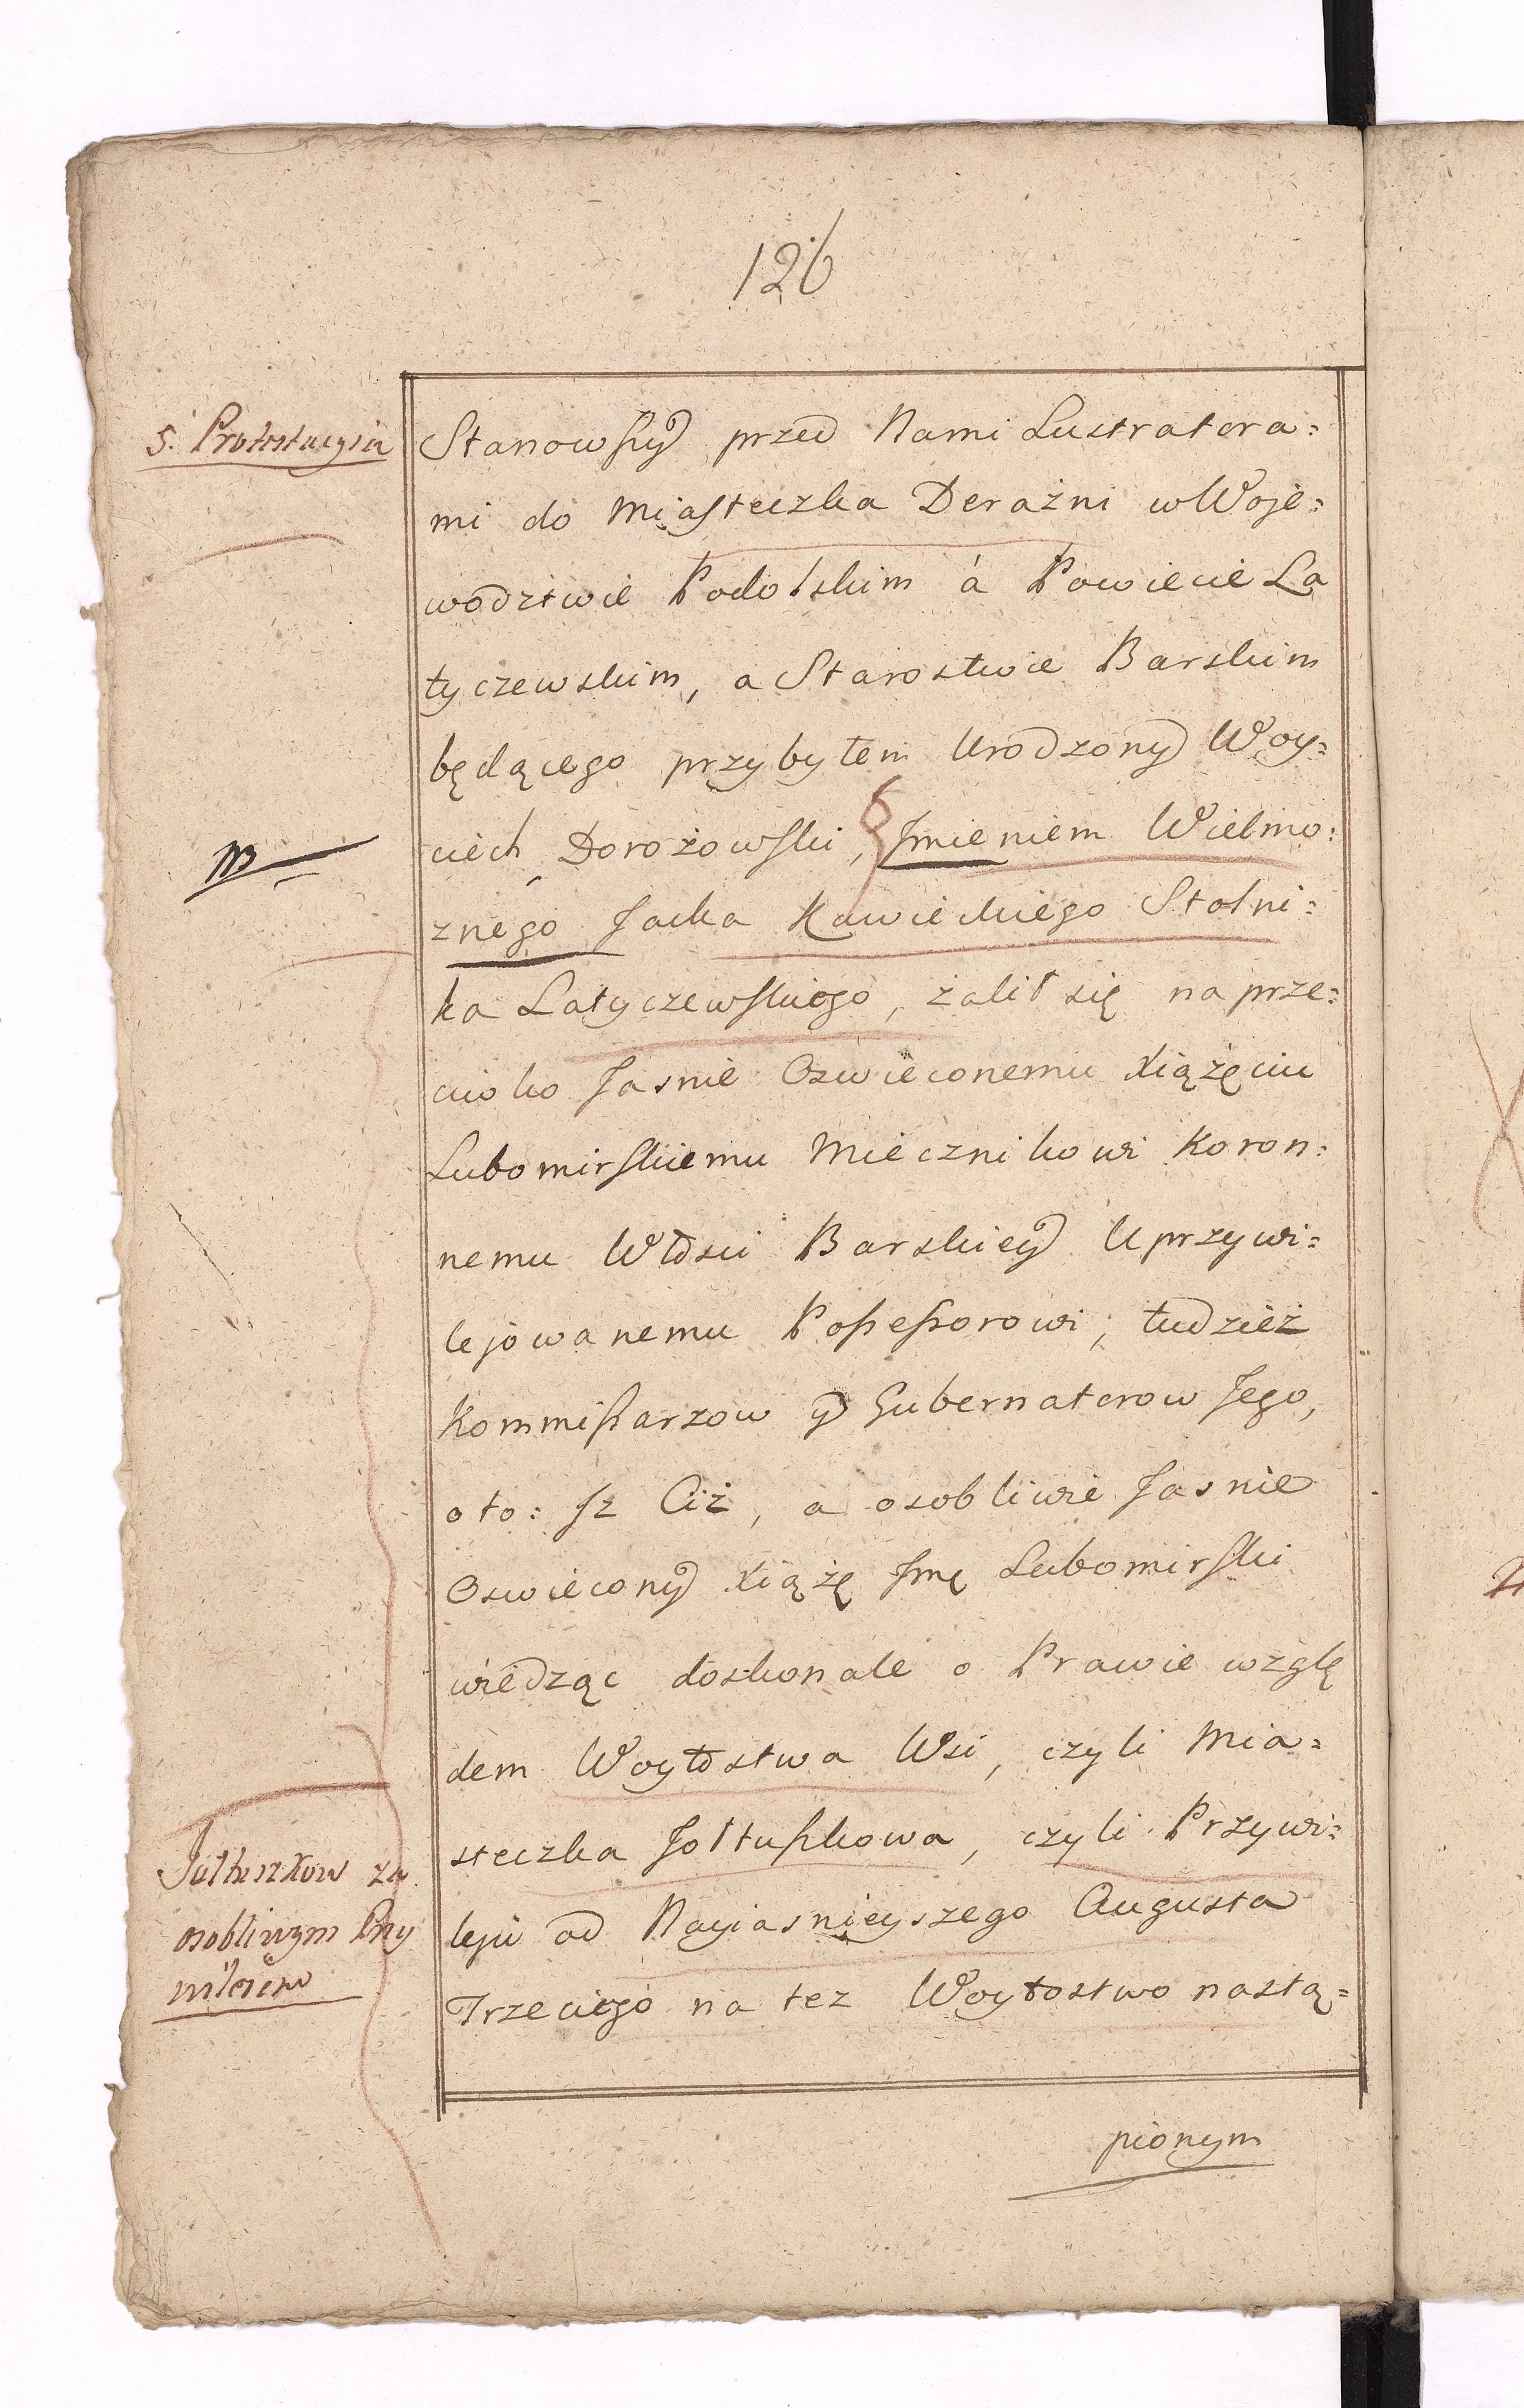 126
5. Protestacyia
Stanowszy przed Nami Lustratora:
mi do Miasteczka Derażni w Woje:
wodztwie Podolskim á Powiecie La
tyczewskim, a Starostwie Barskim
będącego przybyłem Urodzony Woy:
ciech Dorożowski, Jmieniem Wielmo:
NB
żnego Jacka Kawieckiego Stolni:
ka Latyczewskiego, żalił się naprze:
ciwko Jasnie Oswieconemu Xiążęciu
Lubomirskiemu Miecznikowi Koron:
nemu Włosci Barskiey Uprzywi:
lejowanemu Possessorowi; tudzież
Kommissarzow y Gubernatorow Jego,
oto: Jż Ciż, a osobliwie Jasnie
Oswiecony Xiążę Jmę Lubomirski
wiedząc doskonale o Prawie wzglę
dem Woytostwa Wsi, czyli Mia:
steczka Jołtuszkowa, czyli Przywi:
Jołtuszkow za
osobliwym Przy
wileiem
leju od Nayiasnieyszego Augusta
Trzeciego na tez Woytostwo nastą:
pionym